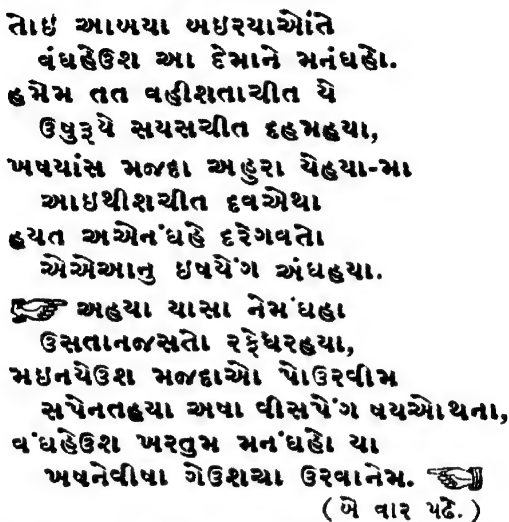 તોઇ આબયા બઇરયાઓંતે
વંઘહેઉશ આ દેમાને મનંઘહો.
હમેમ તત વહીશતાચીત યે
ઉષુરૂયે સયસચીત દહમહયા,
ખષયાંસ મજદા અહુરા યેહયા-મા
આઇથીશચીત દવએથા
હયત અએનંઘહે દરેગવતો
એએઆનુ ઇષયેંગ અંઘહયા.
☞ અહયા યાસા નેમંઘહા
ઉસતાનજસતો રફેધરહયા,
મઇનયેઉશ મજદાઓ પોઉરવીમ
સપેનતહયા અષા વીસપેંગ ષયઓથના,
વંઘહેઉશ ખરતુમ મનંઘહો યા
ખષનેવીષા ગેઉશચા ઉરવાનેમ. ☜
( બે વાર પઢે. )